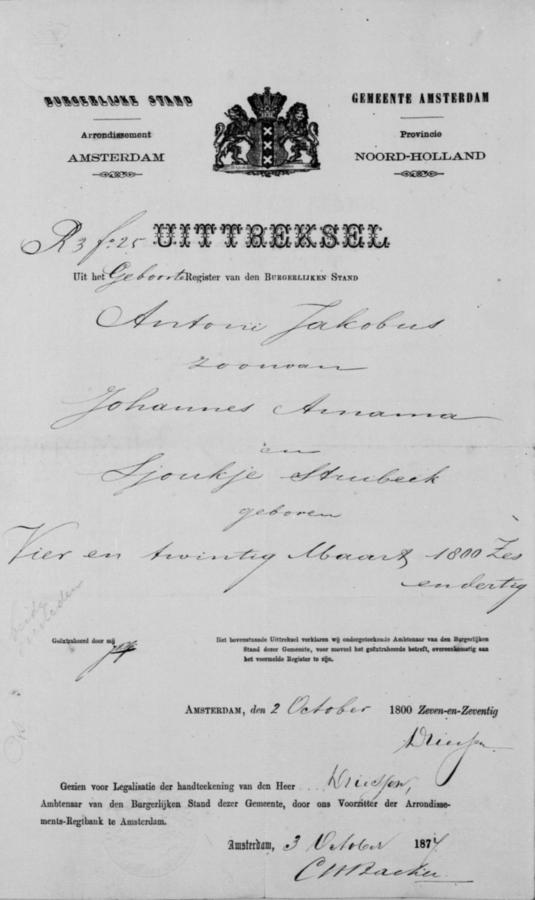 BURGERLIJKE STAND
GEMEENTE AMSTERDAM
Arrondissement
AMSTERDAM
Provincie
NOORD-HOLLAND
R 3 fo 25 UITTREKSEL
Uit het Geboorte Register van den BURGERLIJKEN STAND
Antoni Jakobus
zoon van
Johannes Amama
en
Sjoukje Strubeek
geboren
Vier en twintig Maart 1800 Zes
en dertig
Geëxtraheerd door mij
Het bovenstaande Uittreksel verklaren wij ondergeteekende Ambtenaar van den Burgerlijken
Stand dezer Gemeente, voor zooveel het geëxtraheerde betreft, overeenkomstig aan
het voormelde Register te zijn.
AMSTERDAM, den 2 October 1800 Zeven-en-Zeventig
Driessen
Gezien voor Legalisatie der handteekening van den Heer Driessen,
Ambtenaar van den Burgerlijken Stand dezer Gemeente, door ons Voorzitter der Arrondisse-
ments-Regtbank te Amsterdam.
Amsterdam, 3 October 1877
C W Backer